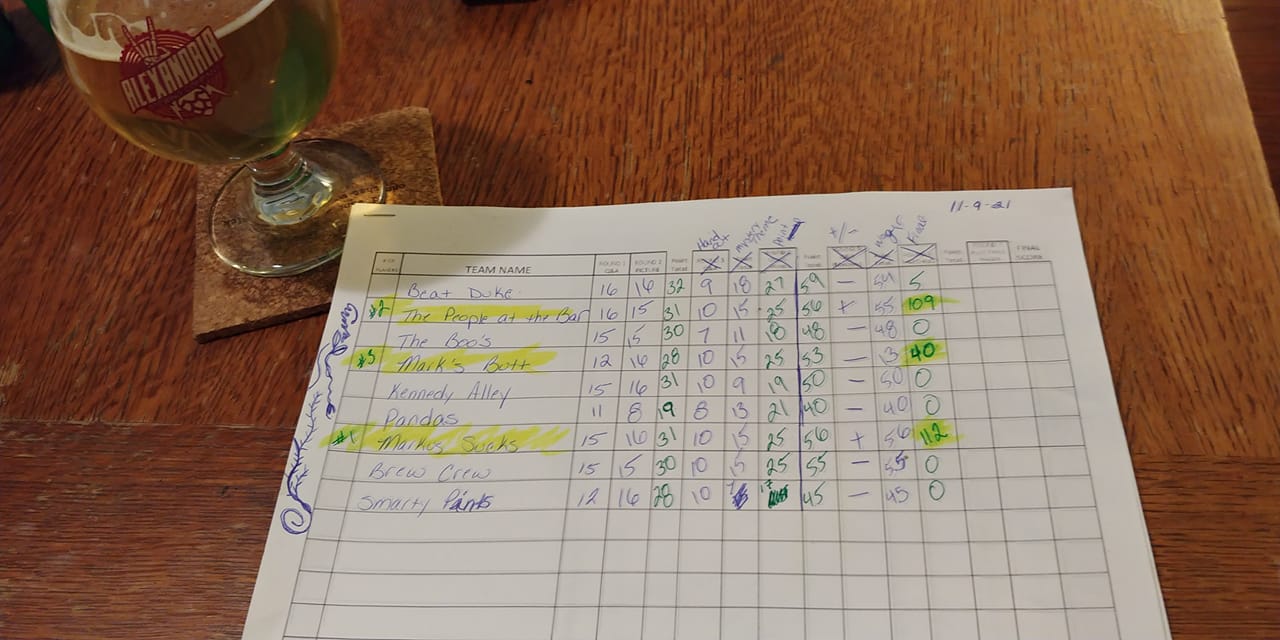 ALEXANDRIA
11-9-21
Hand out +/- Final
# OF PLAYERS TEAM NAME ROUND 1 Q&A ROUND 2 PICTURE FINAL SCORE
Beat Duke 16 16 32 9 18 27 59 — 54 5
#2 The People at the Bar 16 15 31 10 15 25 56 + 55 109
The Boo's 15 15 30 7 11 18 48 — 48 0
#3 Mark's Butt 12 16 28 10 15 25 53 — 13 40
Kennedy Alley 15 16 31 10 9 19 50 — 50 0
Pandas 11 8 19 8 13 21 40 — 40 0
#1 Markus Sucks 15 16 31 10 15 25 56 + 56 112
Brew Crew 15 15 30 10 15 25 55 — 55 0
Smarty Pants 12 16 28 10 7 17 45 — 45 0